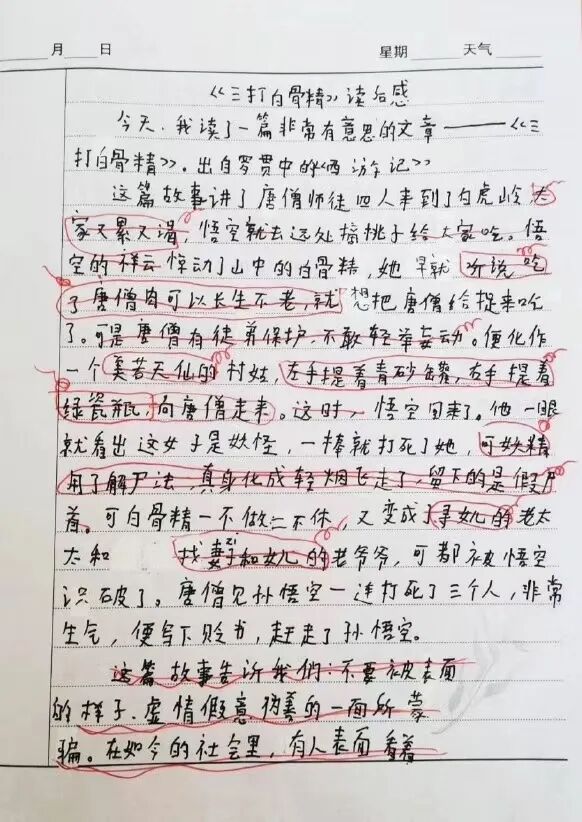 月 日 星期 天气
《三打白骨精》读后感
今天,我读了一篇非常有意思的文章——《三
打白骨精》.出自罗贯中的《西游记》
这篇故事讲了唐僧师徒四人来到了白虎岭大
家又累又渴,悟空就去远处摘桃子给大家吃。悟
空的祥云惊动了山中的白骨精,她早就听说吃
了唐僧肉可以长生不老,就想把唐僧给捉来吃
了。可是唐僧有徒弟保护,不敢轻举妄动。便化作
一个美若天仙的村姑,左手提着青砂罐,右手提着
绿瓷瓶,向唐僧走来。这时,悟空回来了。他一眼
就看出这女子是妖怪,一棒就打死了她,可妖精
用了解尸法,真身化成轻烟飞走了,留下的是假尸
首。可白骨精一不做二不休,又变成了寻女儿的老太
太和 找妻子和女儿的老爷爷,可都被悟空
识破了。唐僧见孙悟空一连打死了三个人,非常
生气,便写下贬书,赶走了孙悟空。
这篇故事告诉我们:不要被表面
的样子.虚情假意伪善的一面所蒙
骗。在如今的社会里,有人表面看着